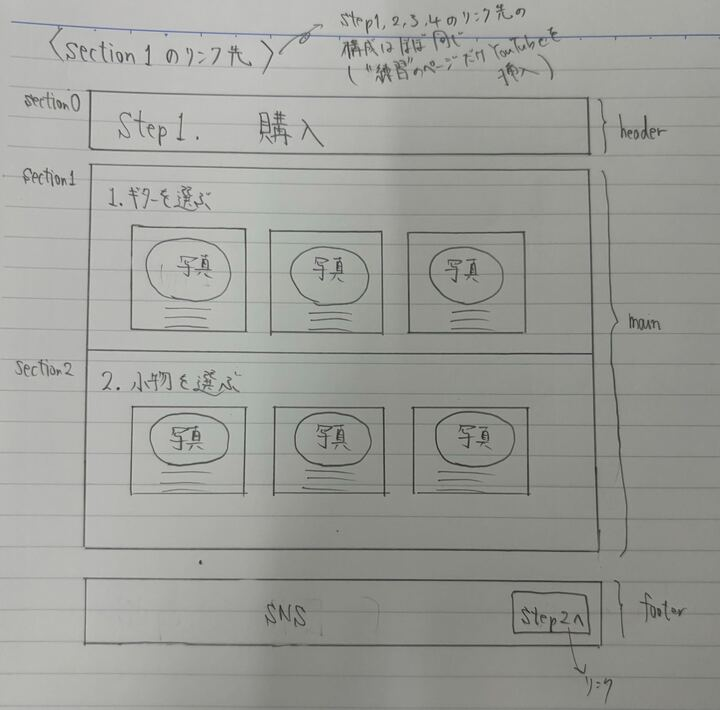 〈section1のリンク先〉
step1,2,3,4のリンク先の
構成はほぼ同じ
("練習"のページだけYouTubeを
挿入)
section0
Step1. 購入
header
section1
1.ギターを選ぶ
写真 写真 写真
main
section2
2.小物を選ぶ
写真 写真 写真
SNS
step2へ
footer
リンク